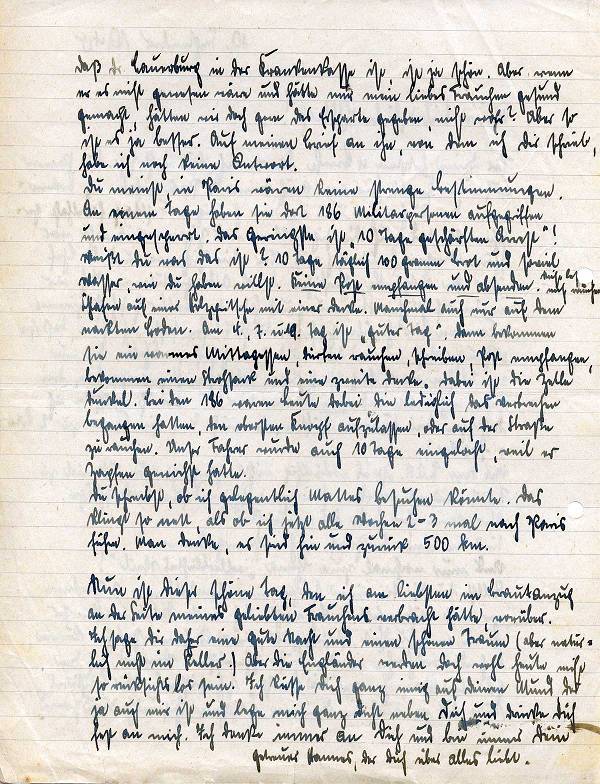 daß Dr. Lauerburg in der Krankenkasse ist, ist ja schön. Aber wenn
er es nicht gewesen wäre und hätte mir mein liebes Frauchen gesund
gemacht, hätten wir doch gern das Ersparte gegeben, nicht wahr? Aber so
ist es ja besser. Auf meinen Brief an ihn, von dem ich dir schrieb,
habe ich noch keine Antwort.
Du meinst, in Paris wären keine strenge Bestimmungen.
An einem Tage haben sie dort 186 Militärpersonen aufgegriffen
und eingesperrt. Das Geringste ist "10 Tage geschärften Arrest"!
Weißt du was das ist? 10 Tage täglich 100 gramm Brot und soviel
Wasser, wie du haben willst. Keine Post empfangen und absenden.
nicht rauchen
Schlafen auf einer Holzpritsche mit einer Decke. Manchmal auch nur auf dem
nackten Boden. Am 4., 7. u. 9. Tag ist "guter Tag", dann bekommen
sie ein warmes Mittagessen, dürfen rauchen, schreiben, Post empfangen,
bekommen einen Strohsack und eine zweite Decke. Dabei ist die Zelle
dunkel. Bei den 186 waren Leute dabei die lediglich das Verbrechen
begangen hatten, den obersten Knopf aufzulassen, oder auf der Straße
zu rauchen. Unser Fahrer wurde auch 10 Tage eingelocht, weil er
gemacht hatte.
Du schreibst, ob ich gelegentlich Mattes besuchen könnte. Das
klingt so nett, als ob ich jetzt alle Wochen 2-3 mal nach Paris
führe. Man denke, es sind hin und zurück 500 km.
Nun ist dieser schöne Tag, den ich am liebsten im Brautanzug
an der Seite meines geliebten Frauchens verbracht hätte, vorüber.
Ich sage dir daher eine gute Nacht und einen schönen Traum (aber natür-
lich nicht im Keller.) Aber die Engländer werden doch wohl heute nicht
so rücksichtslos sein. Ich küsse Dich ganz innig auf deinen Mund der
ja auch mir ist und lege mich ganz dicht neben Dich und drücke Dich
fest an mich. Ich denke immer an Dich und bin immer Dein
getreues Hannes, der dich über alles liebt.